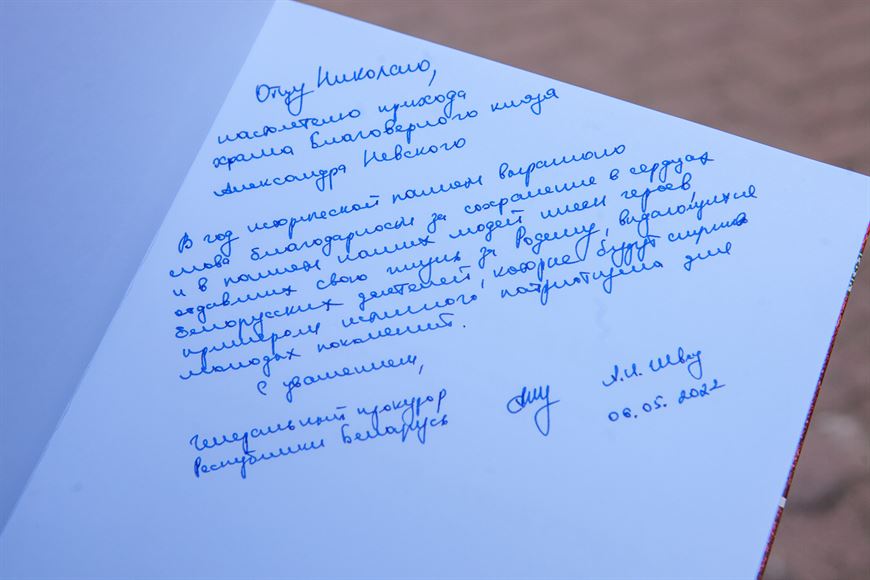 Отцу Николаю,
настоятелю прихода
храма Благоверного князя
Александра Невского
В год исторической памяти выражаю
слова благодарности за сохранение в сердцах
и в памяти наших людей имен героев,
отдавших свою жизнь за Родину, выдающихся
белорусских деятелей, которые будут служить
примером истинного патриотизма для
молодых поколений.
С уважением,
Генеральный прокурор
Республики Беларусь
А.И. Швед
06.05.2022